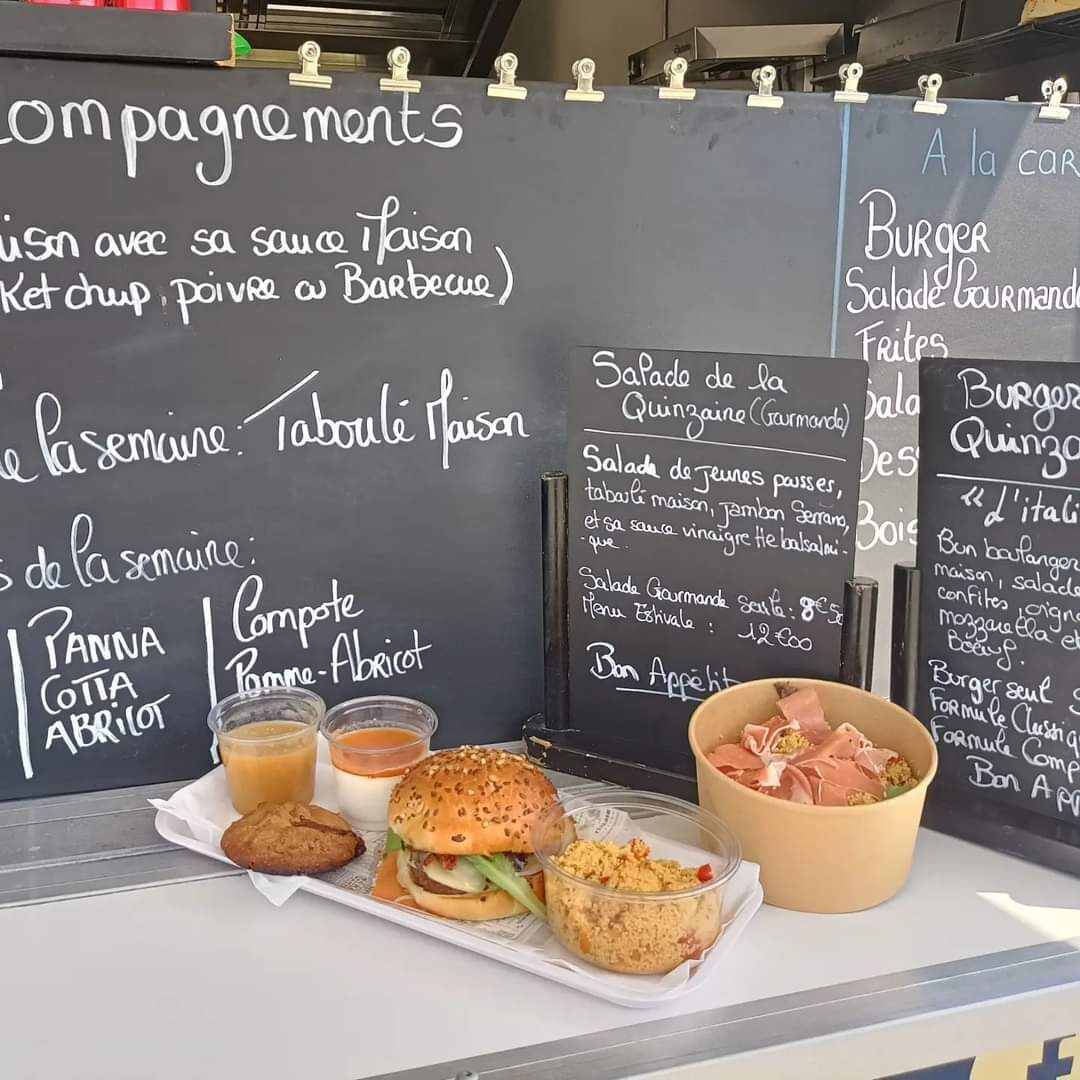 compagnements
ison avec sa sauce Maison
Ketchup, poivre ou Barbecue)
la semaine: Taboulé Maison
s de la semaine:
PANNA
COTTA
ABRICOT
Compote
Pomme-Abricot
Salade de la
Quinzaine (Gourmande)
Salade de jeunes pousses,
taboulé maison, jambon Serrano,
et sa sauce vinaigrette balsami-
-que.
Salade Gourmande seule: 8€50
Menu Estivale : 12€00
Bon Appétit
A la car
Burger
Salade Gourmande
Frites
Sala
Des
Bois
Burger
Quinza
"L'itali
Bun boulanger
maison, salade
confites, oigno
mozzarella et
Boeuf.
Burger seul
Formule Classiq
Formule Comp
Bon App